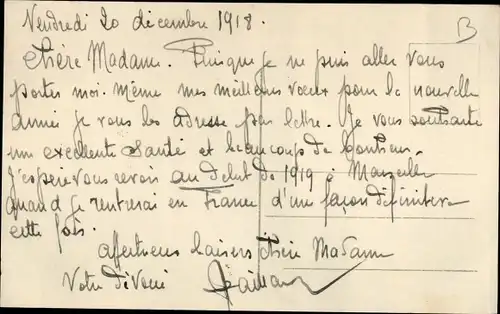 Vendredi 20 décembre 1918.
B
Chère Madame. Puisque je ne puis aller vous
porter moi-même mes meilleurs vœux pour la nouvelle
année je vous les adresse par lettre. Je vous souhaite
une excellente santé et beaucoup de bonheur.
J'espère vous revoir au début de 1919 à Marseille
quand je rentrerai en France d'une façon définitive
cette fois.
Affectueux baisers Chère Madame
Votre dévoué